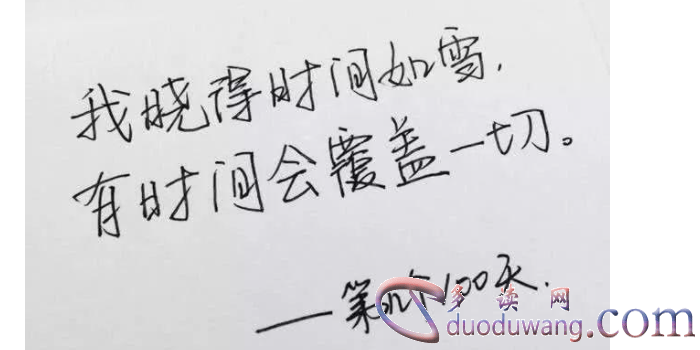 我晓得时间如雪,
有时间会覆盖一切。
——第n个100天.
多读网
duoduwang.com